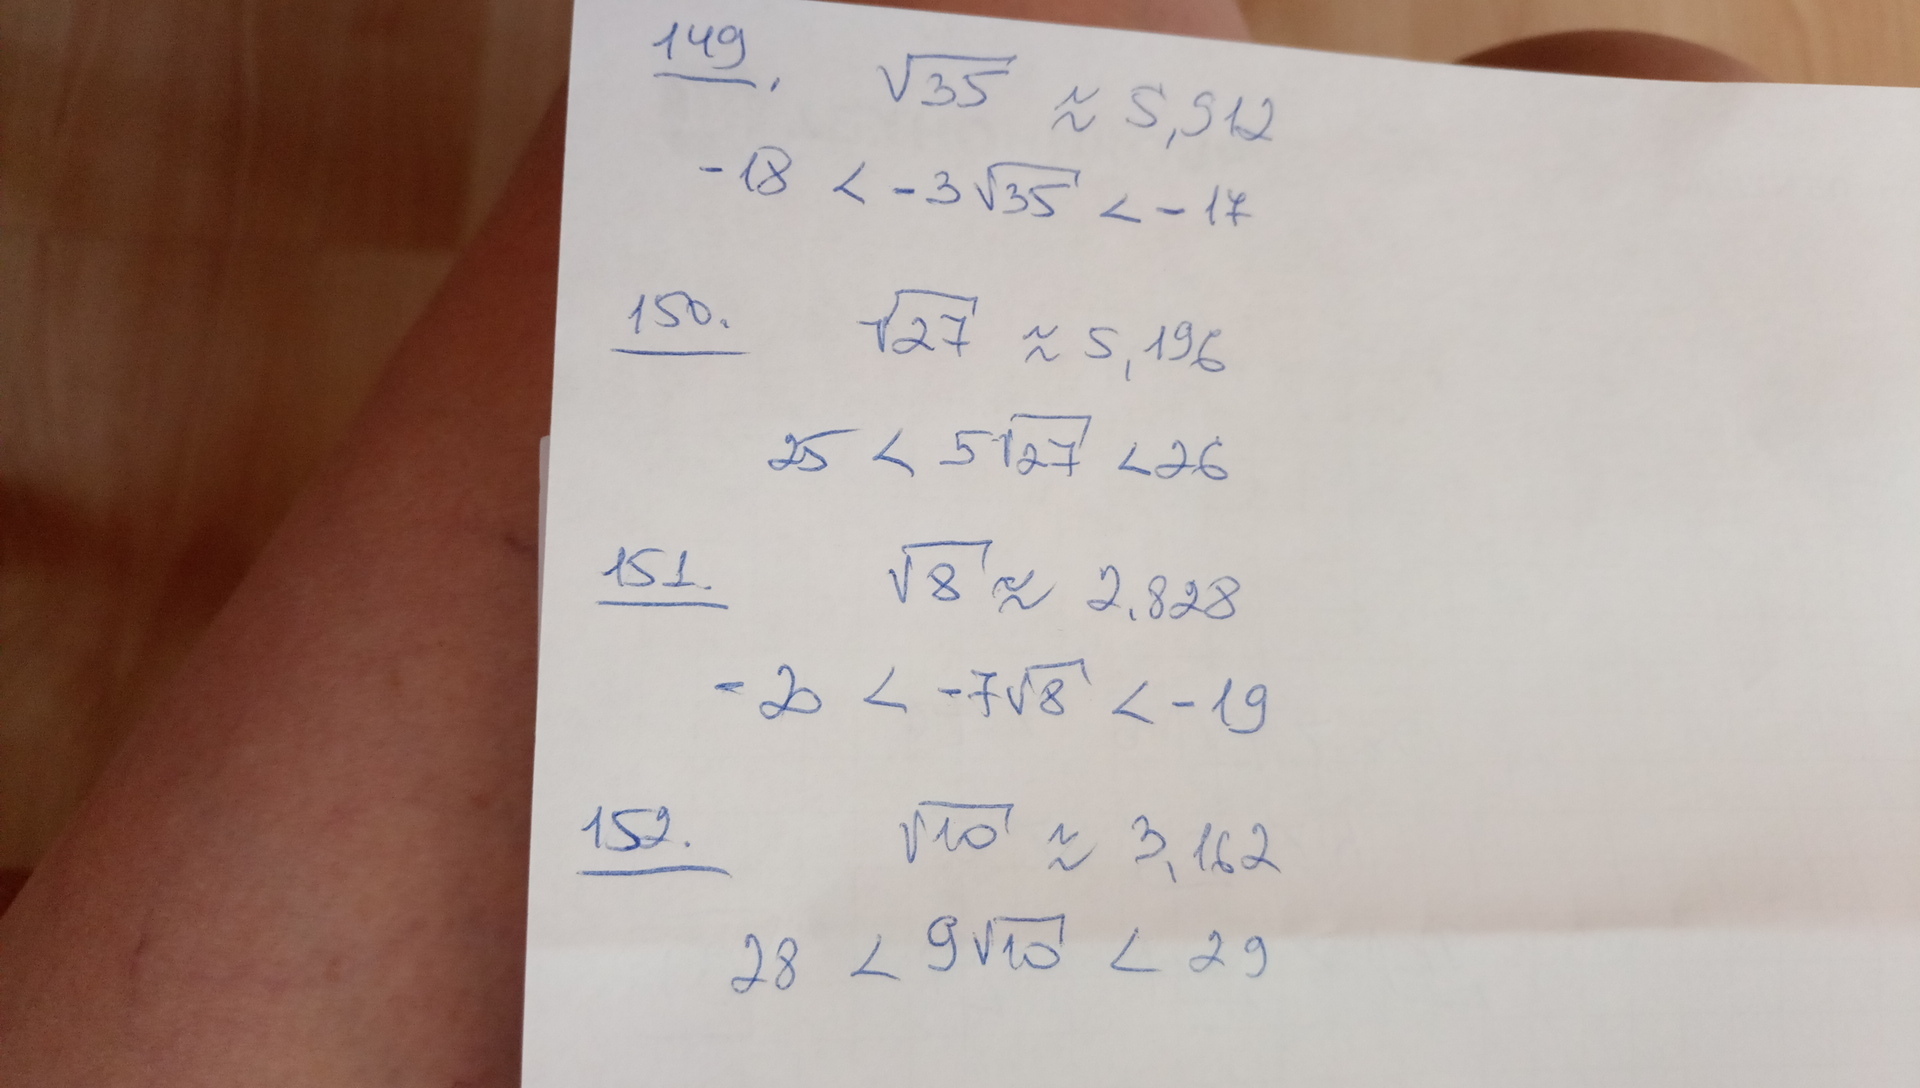 149. √35 ≈ 5,912
-18 < -3√35 < -17
150. √27 ≈ 5,196
25 < 5√27 < 26
151. √8 ≈ 2,828
-20 < -7√8 < -19
152. √10 ≈ 3,162
28 < 9√10 < 29